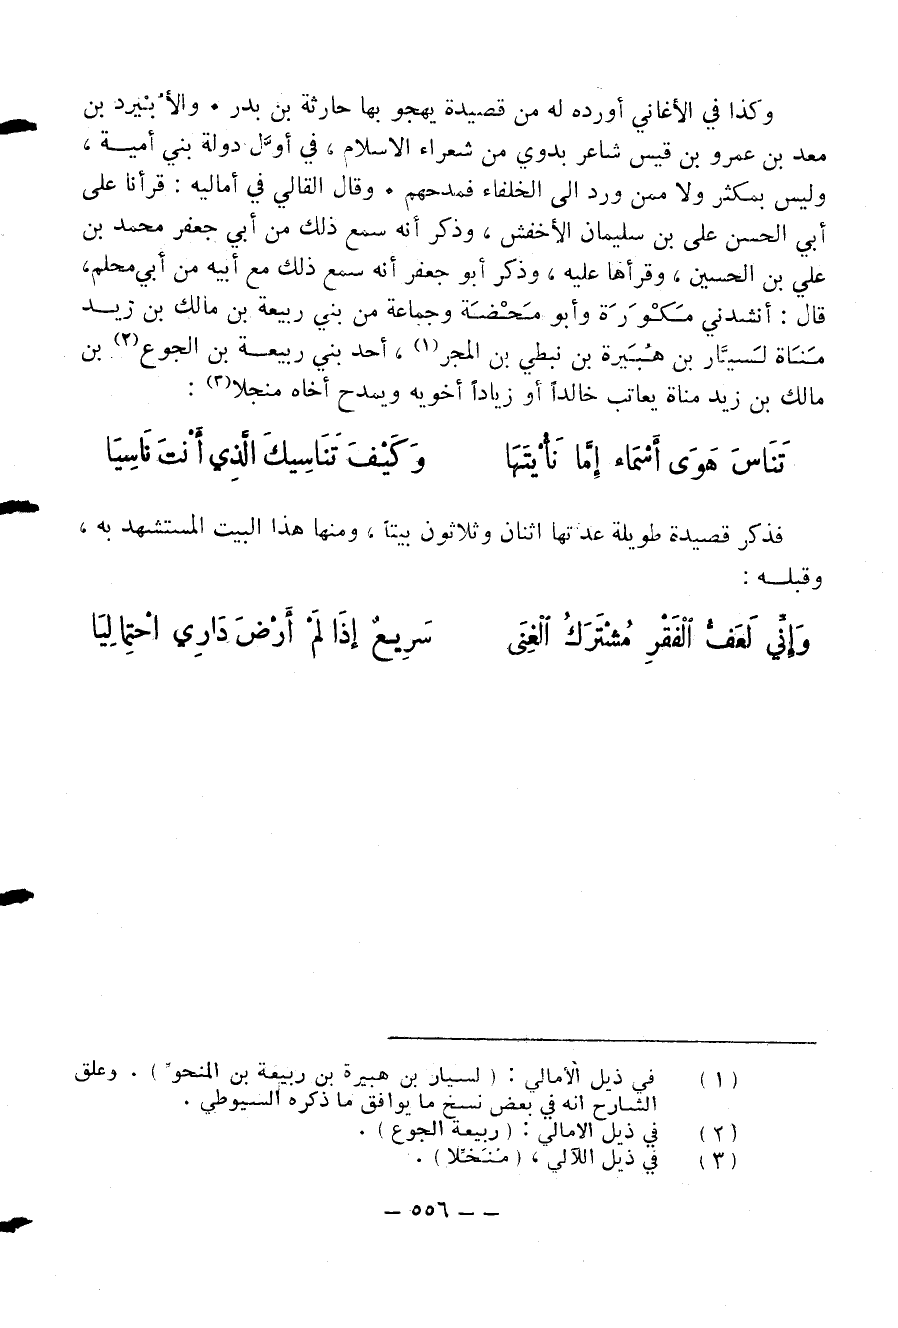 وكذا في الأغاني أورده له من قصيدة يهجو بها حارثة بن بدر • والأُبَيْرِد بن
معد بن عمرو بن قيس شاعر بدوي من شعراء الاسلام ، في أوَّل دولة بني أمية ،
وليس بمكثر ولا ممن ورد الى الخلفاء فمدحهم • وقال القالي في أماليه : قرأنا على
أبي الحسن علي بن سليمان الأخفش ، وذكر أنه سمع ذلك من أبي جعفر محمد بن
علي بن الحسين ، وقرأها عليه ، وذكر أبو جعفر أنه سمع ذلك مع أبيه من أبي محلم،
قال : أنشدني مَكْوَزَة وأبو مَحْضَة وجماعة من بني ربيعة بن مالك بن زيد
مَنَاة لسيَّار بن هُبَيرة بن نبطي بن المجر(١) ، أحد بني ربيعة بن الجوع(٢) بن
مالك بن زيد مناة يعاتب خالداً أو زياداً أخويه ويمدح أخاه منجلا(٣) :
تَنَاسَ هَوَى أَسْمَاء إِمَّا نَأَيْتَهَا وَكَيْفَ تَنَاسِيكَ الَّذِي أَنْتَ نَاسِيَا
فذكر قصيدة طويلة عدتها اثنان وثلاثون بيتاً ، ومنها هذا البيت المستشهد به ،
وقبله :
وَإِنِّي لَعَفُّ الْفَقْرِ مُشْتَرَكُ الْغِنَى سَرِيعٌ إِذَا لَمْ أَرْضَ دَارِي احْتِمَالِيَا
(١) في ذيل الأمالي : ( لسيار بن هبيرة بن ربيعة بن المنحوّ ) . وعلق
الشارح انه في بعض نسخ ما يوافق ما ذكره السيوطي .
(٢) في ذيل الامالي : ( ربيعة الجوع ) .
(٣) في ذيل اللآلي ، ( مُنَخَّلا ) .
— ٥٥٦ — —